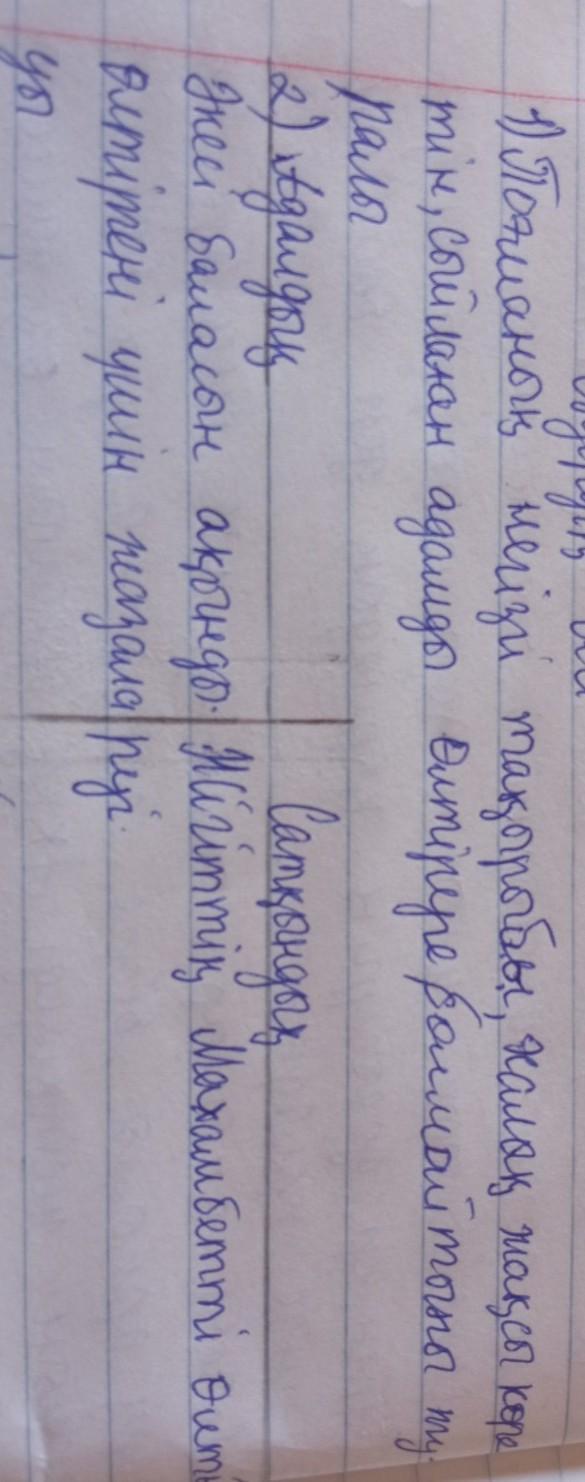 1) Поэманың негізгі тақырыбы, халық жақсы көре
тін, сыйлаған адамды өлтіруге болмайтыны ту-
ралы
2) Адалдық Сатқындық
Әкесі баласын ақынды Жігіттің Махамбетті өлті
өлтіргені үшін жазала руі.
уы